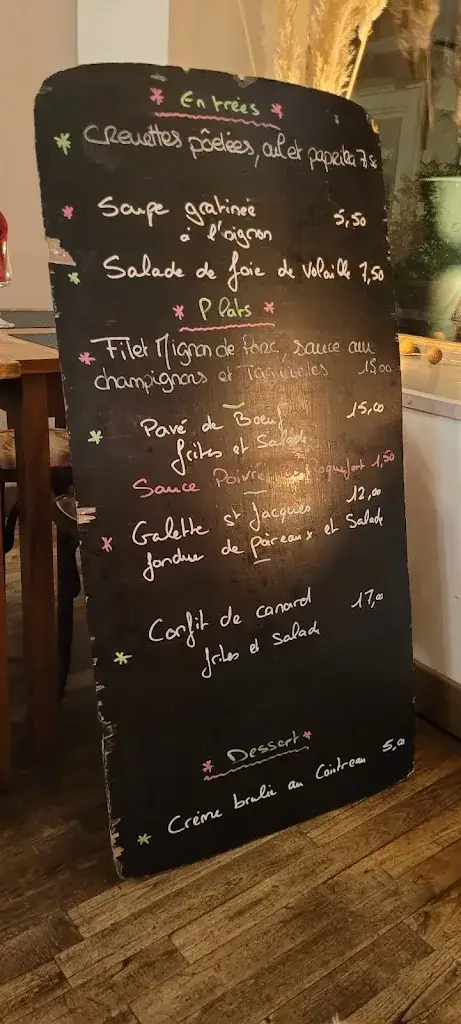 Entrées
Crevettes poêlées, ail et paprika 7,50
Soupe gratinée 5,50
à l'oignon
Salade de foie de volaille 7,50
Plats
Filet Mignon de Porc, sauce aux
champignons et Tagliatelles 15,00
Pavé de Boeuf 15,00
frites et Salade
Sauce Poivre Roquefort 1,50
Galette St Jacques 12,00
fondue de poireaux et Salade
Confit de canard 17,00
frites et Salade
Dessert
Crème brulée au Cointreau 5,00